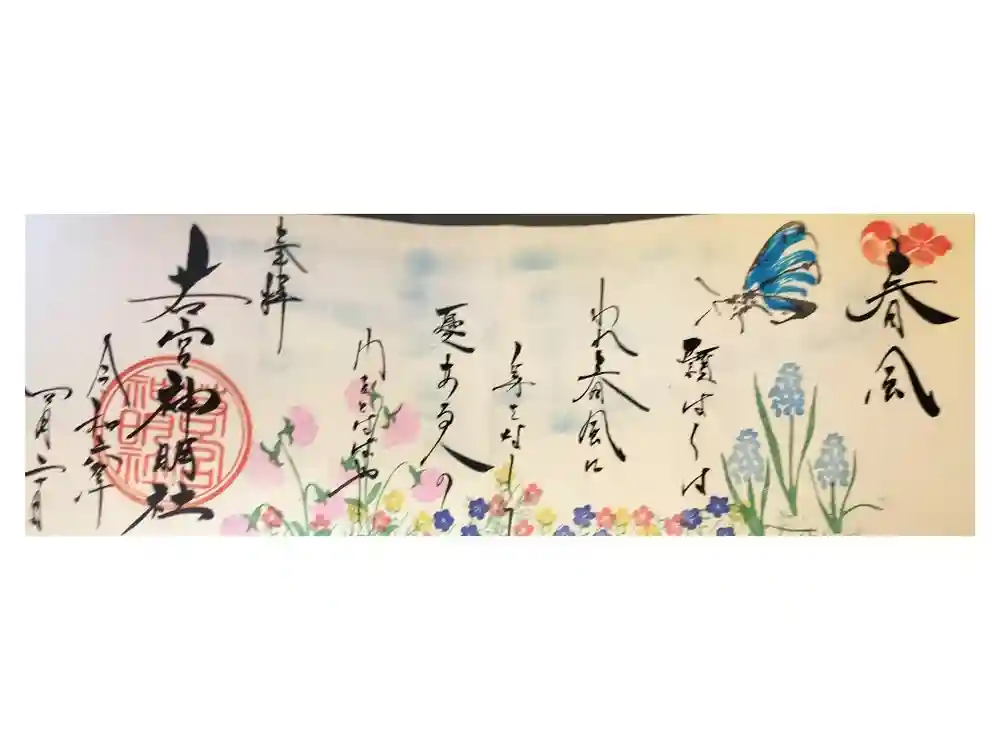 春風
願はくは
われ春風に
身をなして
憂ある人の
門をとはばや
奉拝
若宮神明社
令和六年
四月二十日